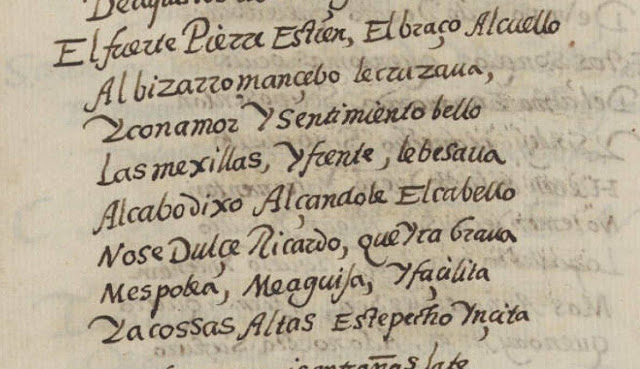 El fuerte Pierra Estien, El braço Al cuello
Al bizarro mançebo le cruzaua,
Y con amor Y Sentimiento bello
Las mexillas, Y frente, le besaua
Al cabo dixo Alçandole El cabello
No se Dulçe Ricardo, que Yra braua
Mespolea, Me aguisa, Y façilita
Y a cossas Altas Este pecho Ynçita